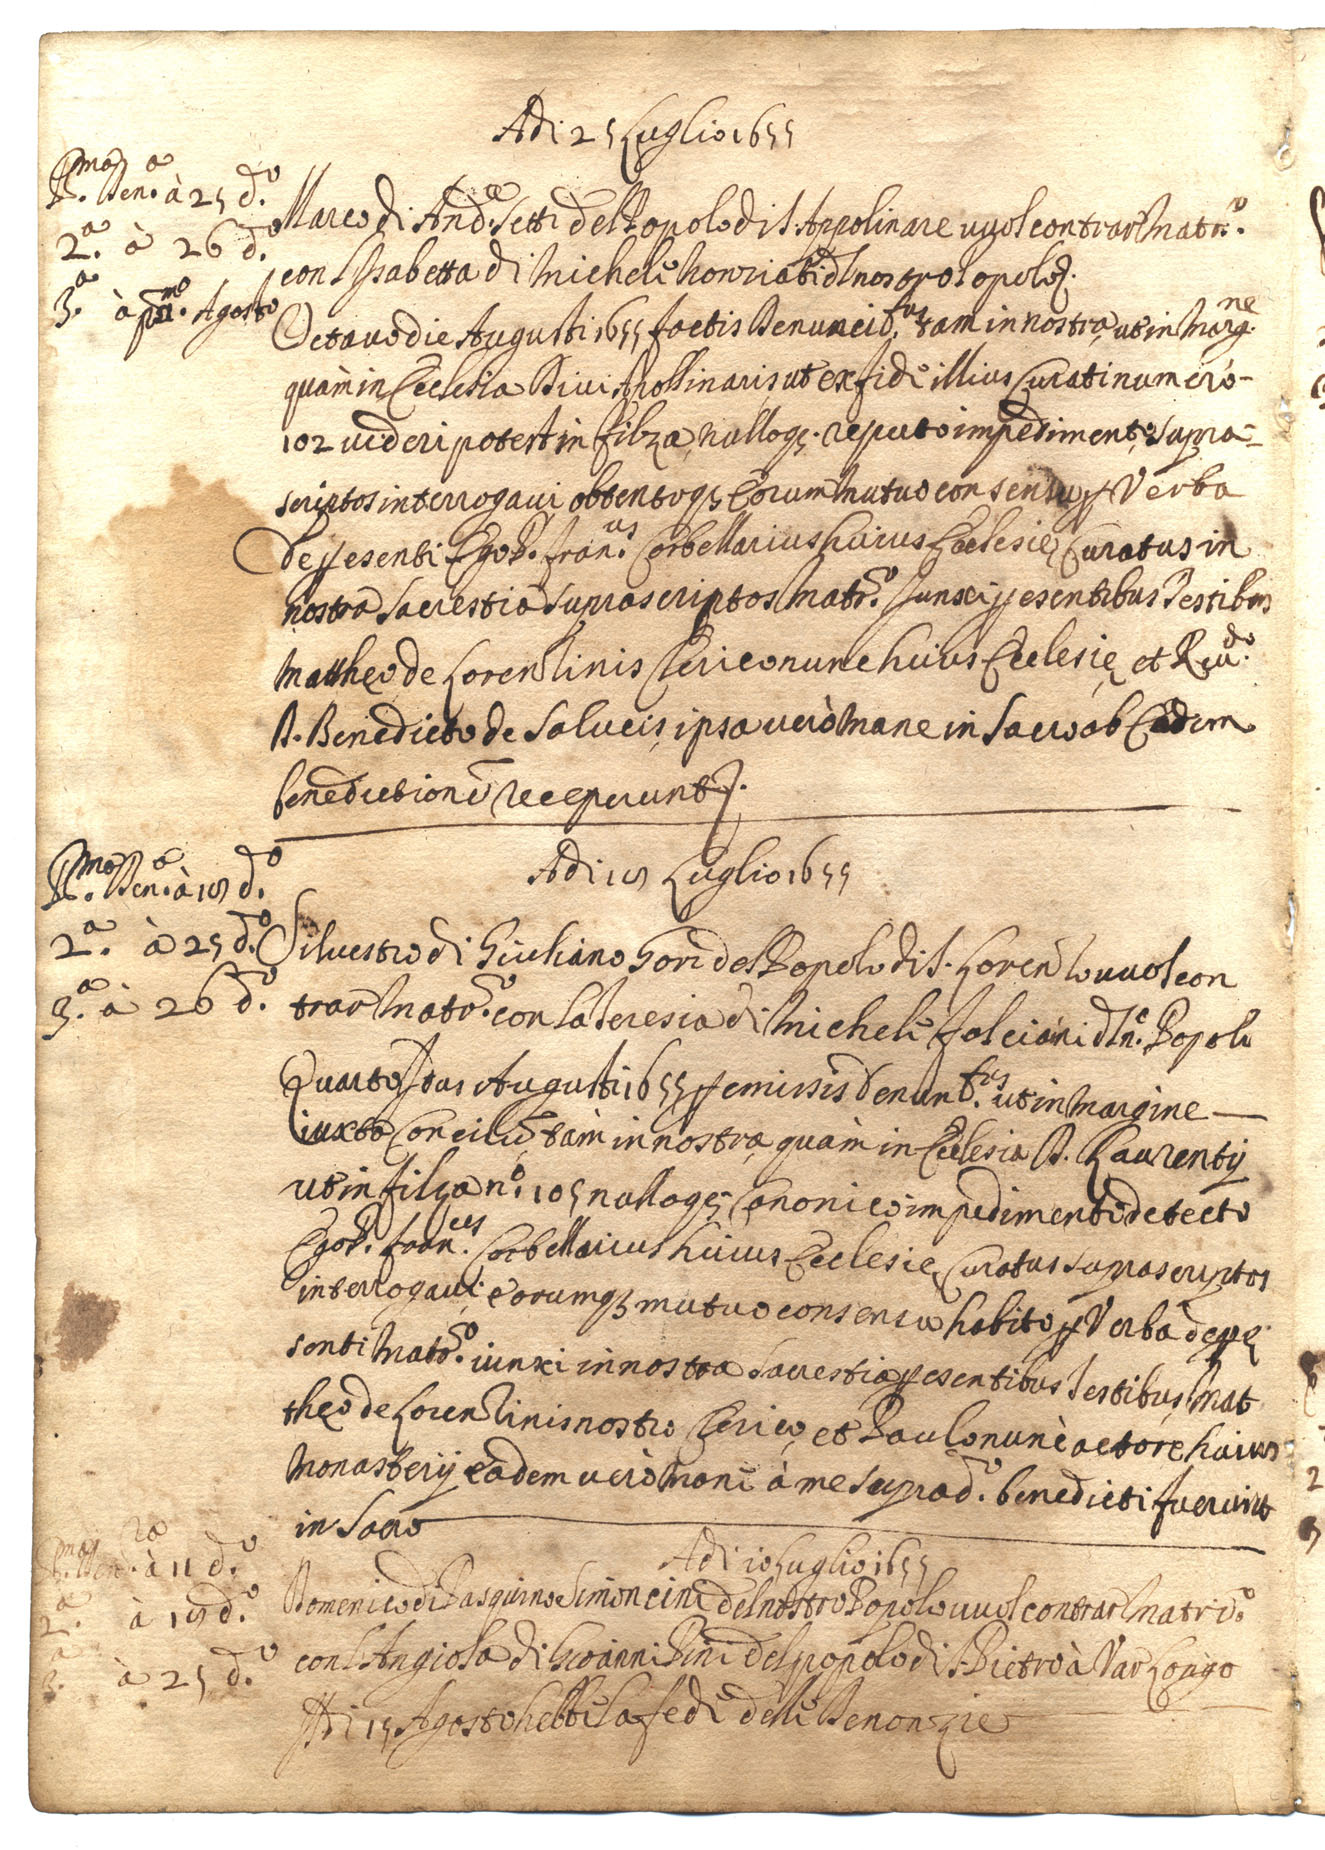 Adi 25 Luglio 1655
P.ma Den.a à 25 d.o
2.a à 26 d.o
3.a à p.mo Agosto
Marco di And.a Setti del Popolo di S. Appolinare vuol contrar Matr.o
con l'Isabetta di Michele del nostro Popolo.
Octavo die Augusti 1655 factis Denunciat.us tam in nostra, ut in Marg.ne
quàm in Ecclesia Divi Apollinaris, ut ex fide illius Curati numero
102 videri potest in filza, nulloq; reperto impedimento, supra-
scriptos interrogavi, obtentoq; eorum mutuo consensu p Verba
de pesenti Ego P. Fran.us Corbellarius huius Ecclesie Curatus in
nostra Sacrestia suprascriptos Matr.o Iunxi pesentibus Testibus
Mattheo de Lorenzinis Clerico nunc huius Ecclesie, et Reu.do
D. Benedicto de Salucis, ipsa verò mane in Sacro ab Eadem
benedictione receperunt.
Adi 18 Luglio 1655
P.ma Den.a à 18 d.o
2.a à 25 d.o
3.a à 26 d.o
Silvestro di Giuliano Gori del Popolo di S. Lorenzo vuol con
trar Matr.o con la Teresia di Michele Folciani d n.o Popolo
Quarto Idus Augusti 1655 pemissis denunt.us ut in margine
iuxta Conciliu, tàm in nostra, quàm in Ecclesia D. Laurentij
ut in filza n.o 105 nulloq; Canonico impedimento detecto
Ego P. Fran.cus Corbellarius huius Ecclesie Curatus suprascriptos
interrogavi, eorumq; mutuo consensu habito, p Verba de pe
senti Matr.o iunxi in nostra Sacrestia pesentibus Testibus, Mat
theo de Lorenzinis nostro Clerico, et Paulo nunc actore huius
Monasterij, eadem verò mane à me suprad.o benedicti fuerunt
in Sacro
Adi 10 Luglio 1655
P.ma Den.za à 11 d.o
2.a à 18 d.o
3.a à 25 d.o
Domenico di Pasquino Simoncini del nostro Popolo vuol contrar Matri.o
con l'Angiola di Giovanni Pini del popolo di S. Pietro à Varlongo
Adi 15 Agosto hebbi la fede delle Denonzie